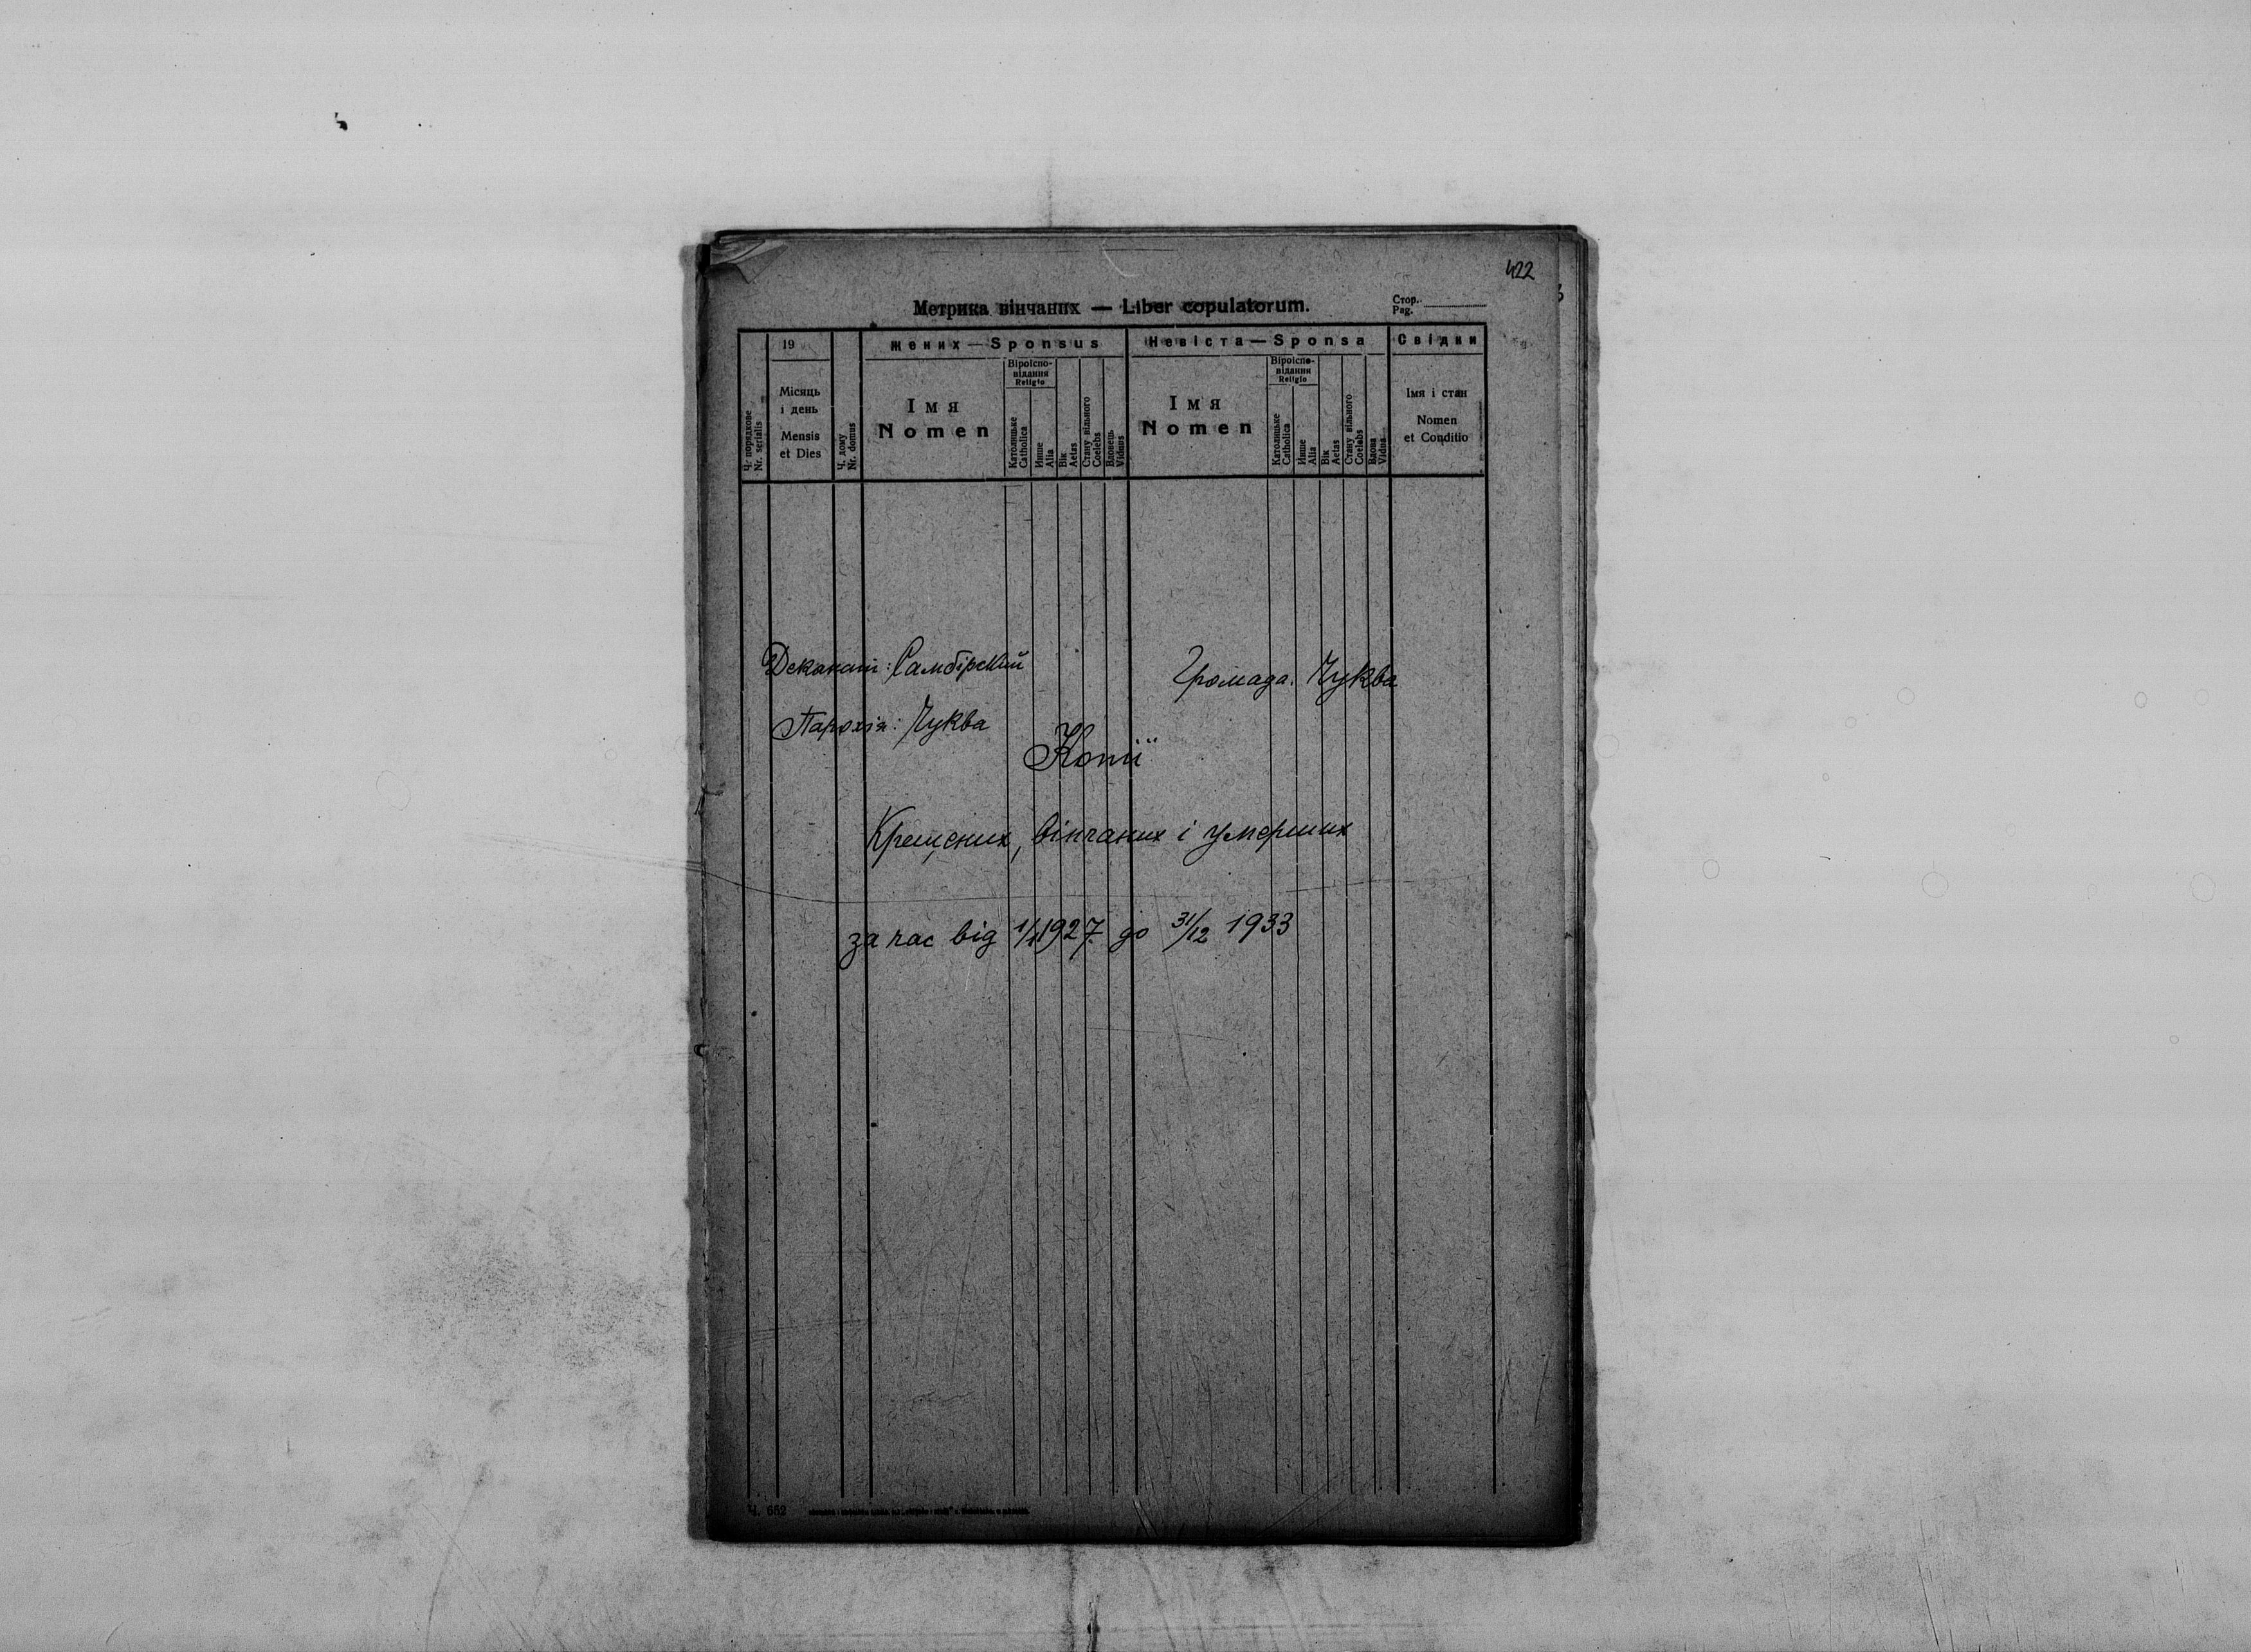 422
Метрика вінчаних — Liber copulatorum.
Стор.
Pag.
Ч. порядкове
Nr. serialis
19
Місяць
і день
Mensis
et Dies
Ч. дому
Nr. domus
Жених — Sponsus
Імя
Nomen
Віроіспо-
відання
Religio
Католицьке
Catholica
Инше
Alia
Вік
Aetas
Стану вільного
Coelebs
Вдовець
Viduus
Невіста — Sponsa
Імя
Nomen
Віроіспо-
відання
Religio
Католицьке
Catholica
Инше
Alia
Вік
Aetas
Стану вільного
Coelebs
Вдова
Vidua
Свідки
Імя і стан
Nomen
et Conditio
Деканат: Самбірский
Громада: Чуква
Парохія: Чуква
Копії
Крещених, вінчаних і умерших
за час від 1/1 1927. до 31/12 1933
Ч. 652